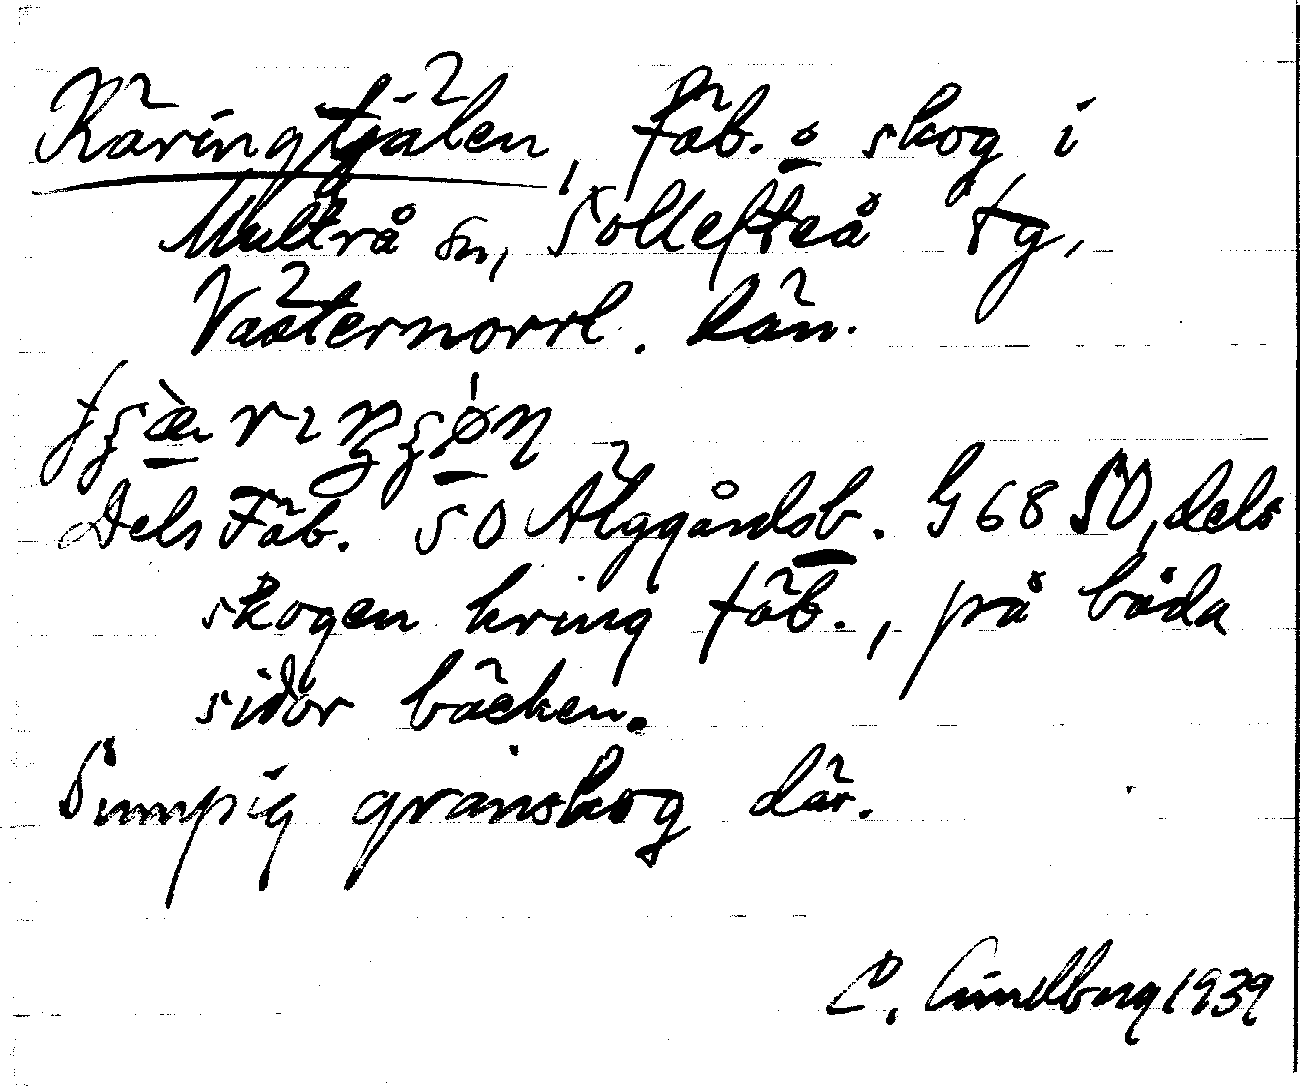 Käringtjälen, fäb. o skog i
Multrå sn, Sollefteå tg,
Västernorrl. län.
Dels Fäb. SO Älggårdsb. G 68 SO, dels
skogen kring fäb., på båda
sidor bäcken.
Sumpig granskog där.
C. Lindberg 1939